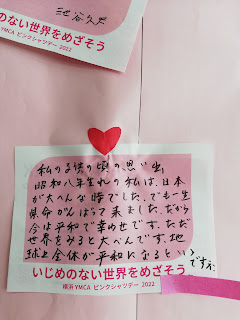 池谷久
のない世界をめざそう
YMCA ピンクシャツデー 2022
私の子供の頃の思い出
昭和八年生れの私は、日本
が大へんな時でした。でも一生
県命がんばって来ました。だから
今は平和で幸せです。ただ
世界をみると大へんです。地
球上全体が平和になるといいですね
いじめのない世界をめざそう
横浜YMCA ピンクシャツデー 2022